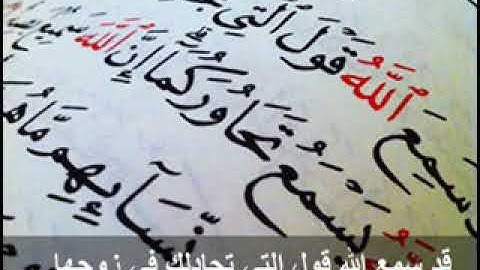 سَمِعَ ٱللَّهُ قَوْلَ ٱلَّتِي
يَسْمَعُ تَحَاوُرَكُمَآ إِنَّ ٱللَّهَ سَمِيعٌ
نِّسَآئِهِم مَّا
قد سمع الله قول التي تجادلك في زوجها